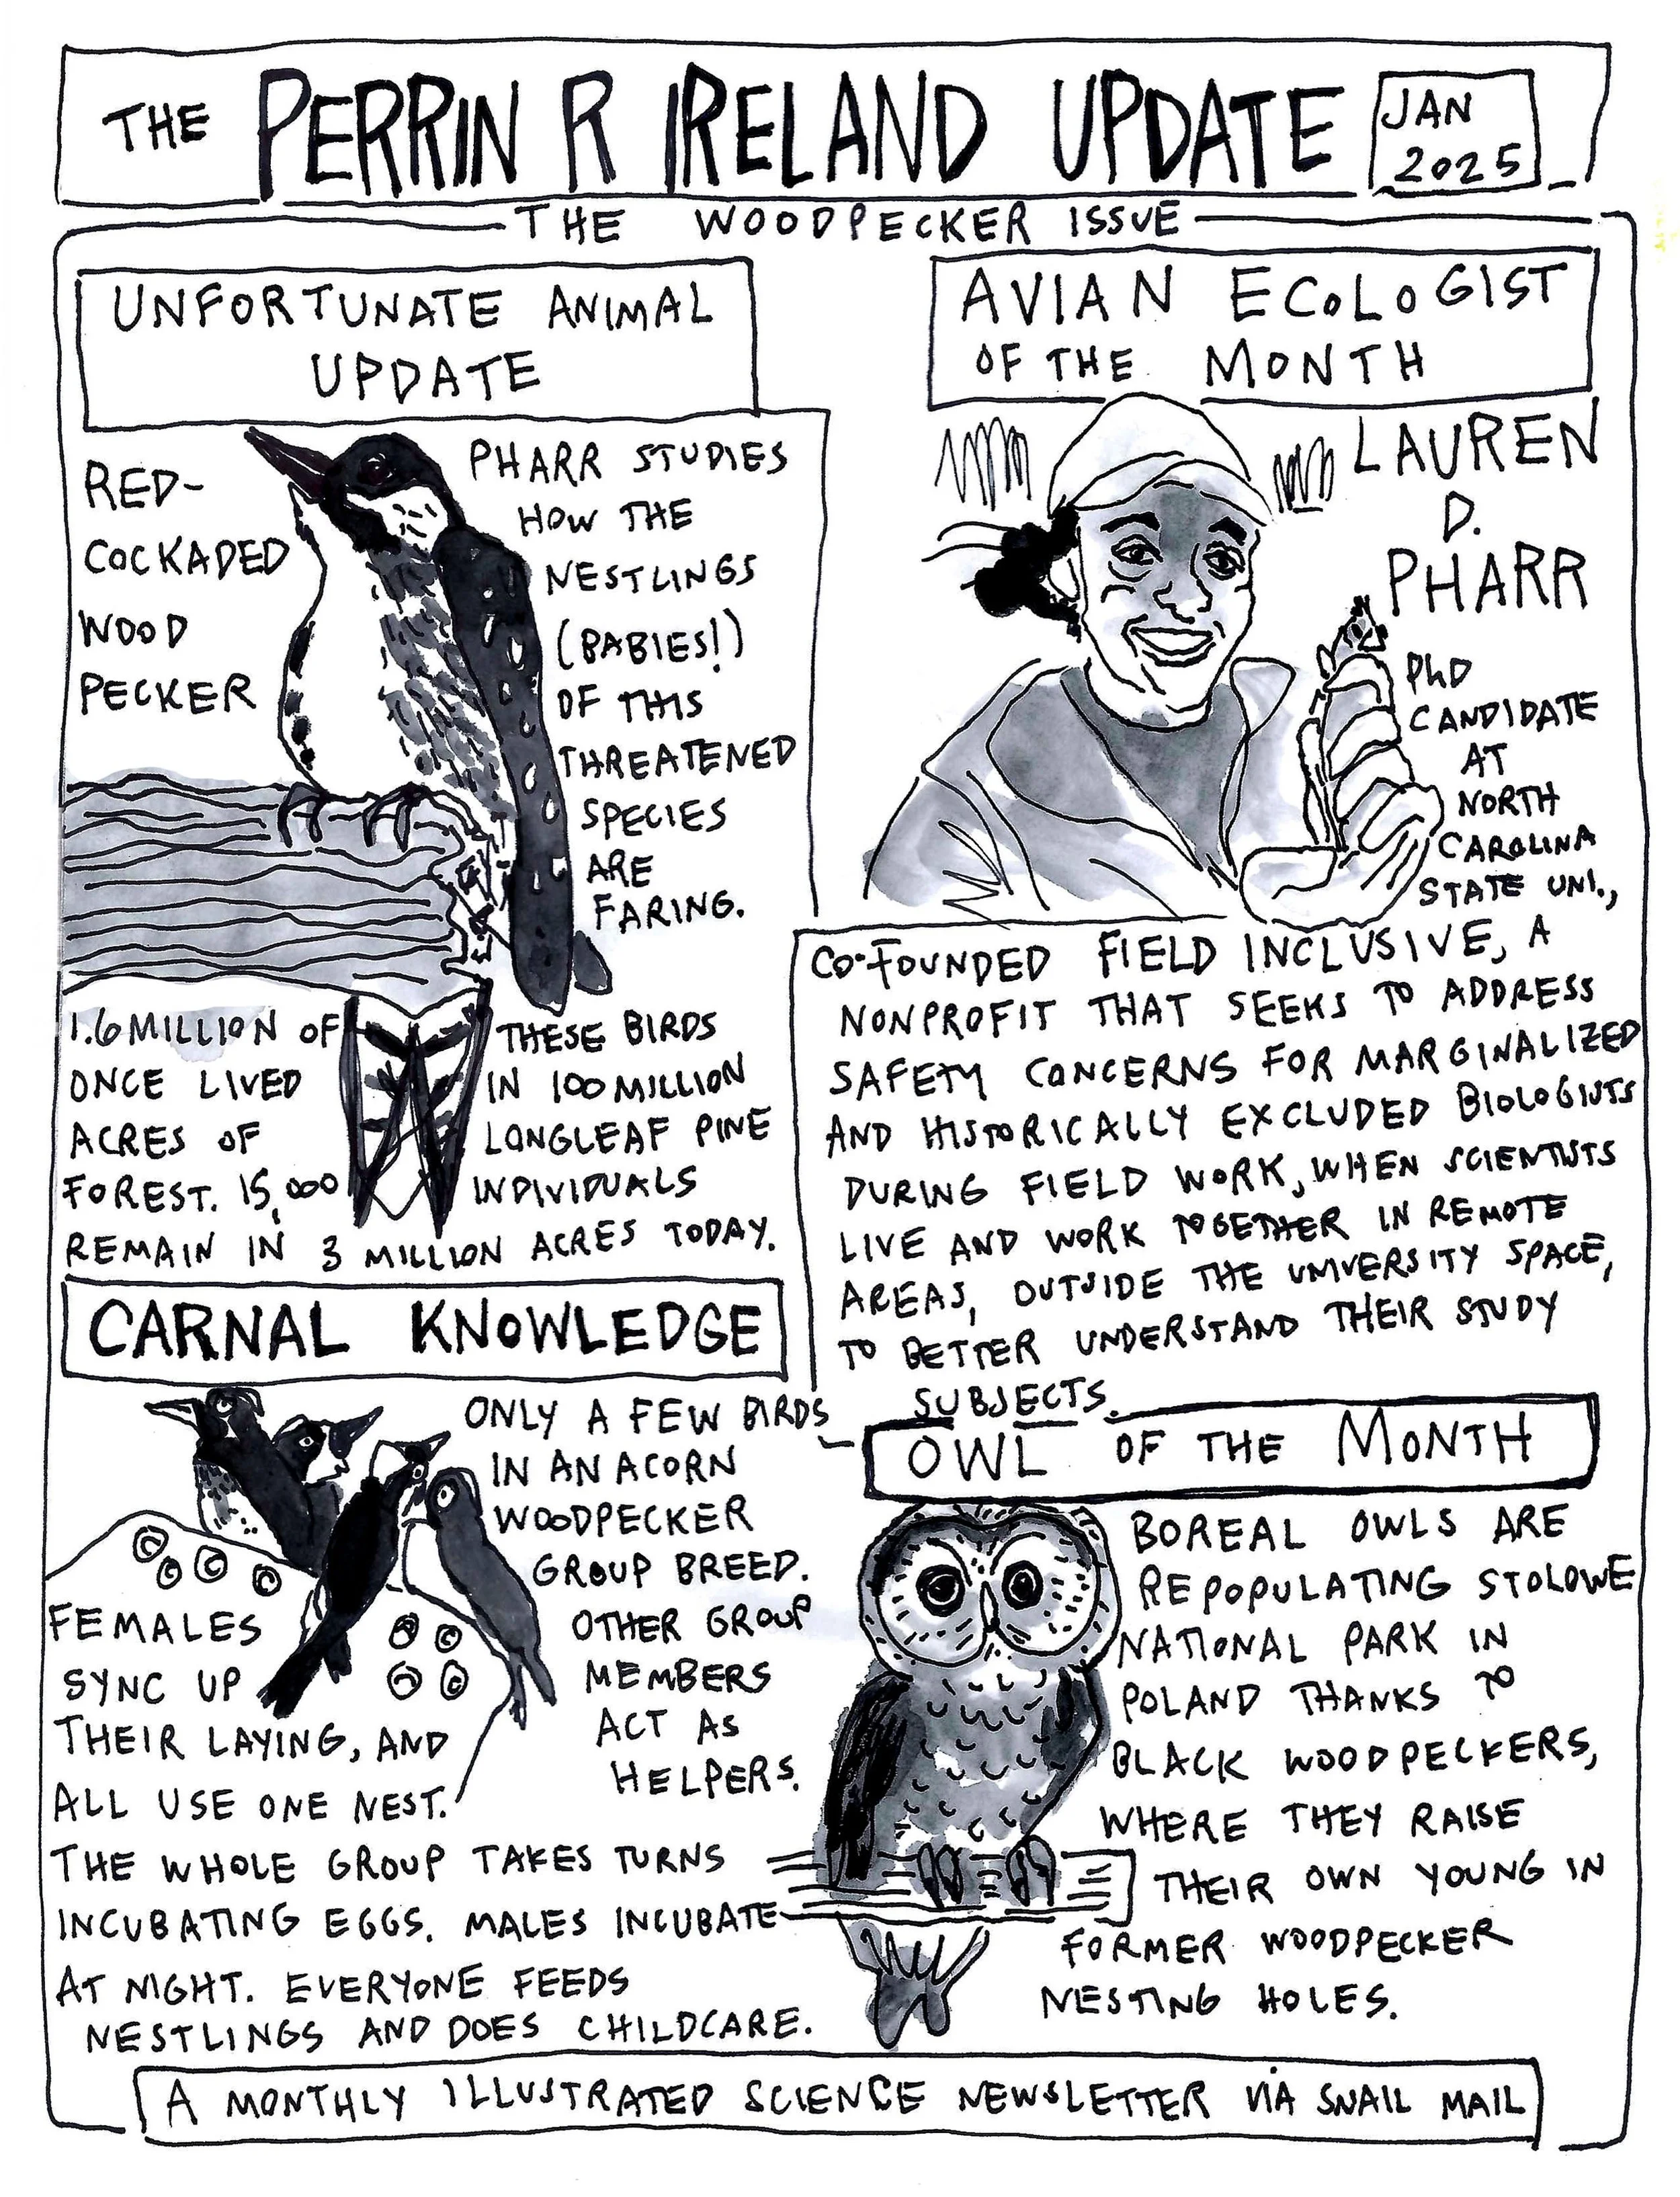 THE PERRIN R IRELAND UPDATE
JAN
2025
THE WOODPECKER ISSUE
UNFORTUNATE ANIMAL
UPDATE
RED-
COCKADED
WOOD
PECKER
PHARR STUDIES
HOW THE
NESTLINGS
(BABIES!)
OF THIS
THREATENED
SPECIES
ARE
FARING.
1.6 MILLION OF THESE BIRDS
ONCE LIVED IN 100 MILLION
ACRES OF LONGLEAF PINE
FOREST. 15,000 INDIVIDUALS
REMAIN IN 3 MILLION ACRES TODAY.
AVIAN ECOLOGIST
OF THE MONTH
LAUREN
D.
PHARR
PhD
CANDIDATE
AT
NORTH
CAROLINA
STATE UNI.,
CO-FOUNDED FIELD INCLUSIVE, A
NONPROFIT THAT SEEKS TO ADDRESS
SAFETY CONCERNS FOR MARGINALIZED
AND HISTORICALLY EXCLUDED BIOLOGISTS
DURING FIELD WORK, WHEN SCIENTISTS
LIVE AND WORK TOGETHER IN REMOTE
AREAS, OUTSIDE THE UNIVERSITY SPACE,
TO BETTER UNDERSTAND THEIR STUDY
SUBJECTS.
CARNAL KNOWLEDGE
ONLY A FEW BIRDS
IN AN ACORN
WOODPECKER
GROUP BREED.
OTHER GROUP
MEMBERS
ACT AS
HELPERS.
FEMALES
SYNC UP
THEIR LAYING, AND
ALL USE ONE NEST.
THE WHOLE GROUP TAKES TURNS
INCUBATING EGGS. MALES INCUBATE
AT NIGHT. EVERYONE FEEDS
NESTLINGS AND DOES CHILDCARE.
OWL OF THE MONTH
BOREAL OWLS ARE
REPOPULATING STOLOWE
NATIONAL PARK IN
POLAND THANKS TO
BLACK WOODPECKERS,
WHERE THEY RAISE
THEIR OWN YOUNG IN
FORMER WOODPECKER
NESTING HOLES.
A MONTHLY ILLUSTRATED SCIENCE NEWSLETTER VIA SNAIL MAIL